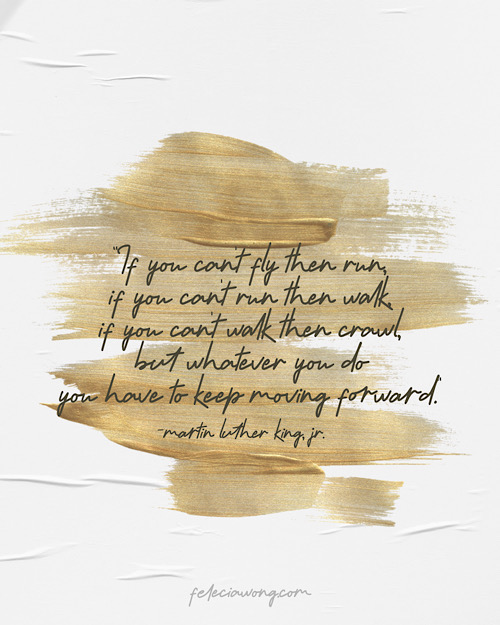 "If you can't fly then run,
if you can't run then walk,
if you can't walk then crawl,
but whatever you do
you have to keep moving forward."
-martin luther king, jr.
feleciawong.com